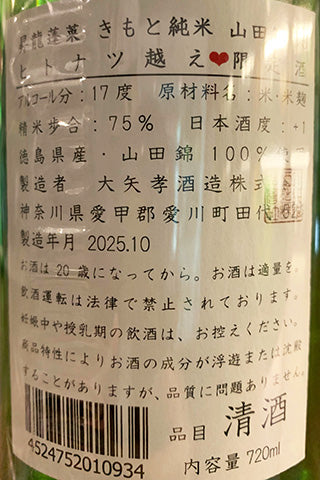 昇龍蓬莱 きもと純米 山田
ヒトナツ越え❤限定酒
アルコール分：17度 原材料名：米・米麹
精米歩合：75% 日本酒度：+1
徳島県産・山田錦 100%使用
製造者 大矢孝酒造株式
神奈川県愛甲郡愛川町田代
製造年月 2025.10
お酒は20歳になってから。お酒は適量を。
飲酒運転は法律で禁止されております。
妊娠中や授乳期の飲酒は、お控えください。
商品特性によりお酒の成分が浮遊または沈殿
することがありますが、品質に問題ありません。
4524752010934
品目 清酒
内容量 720ml